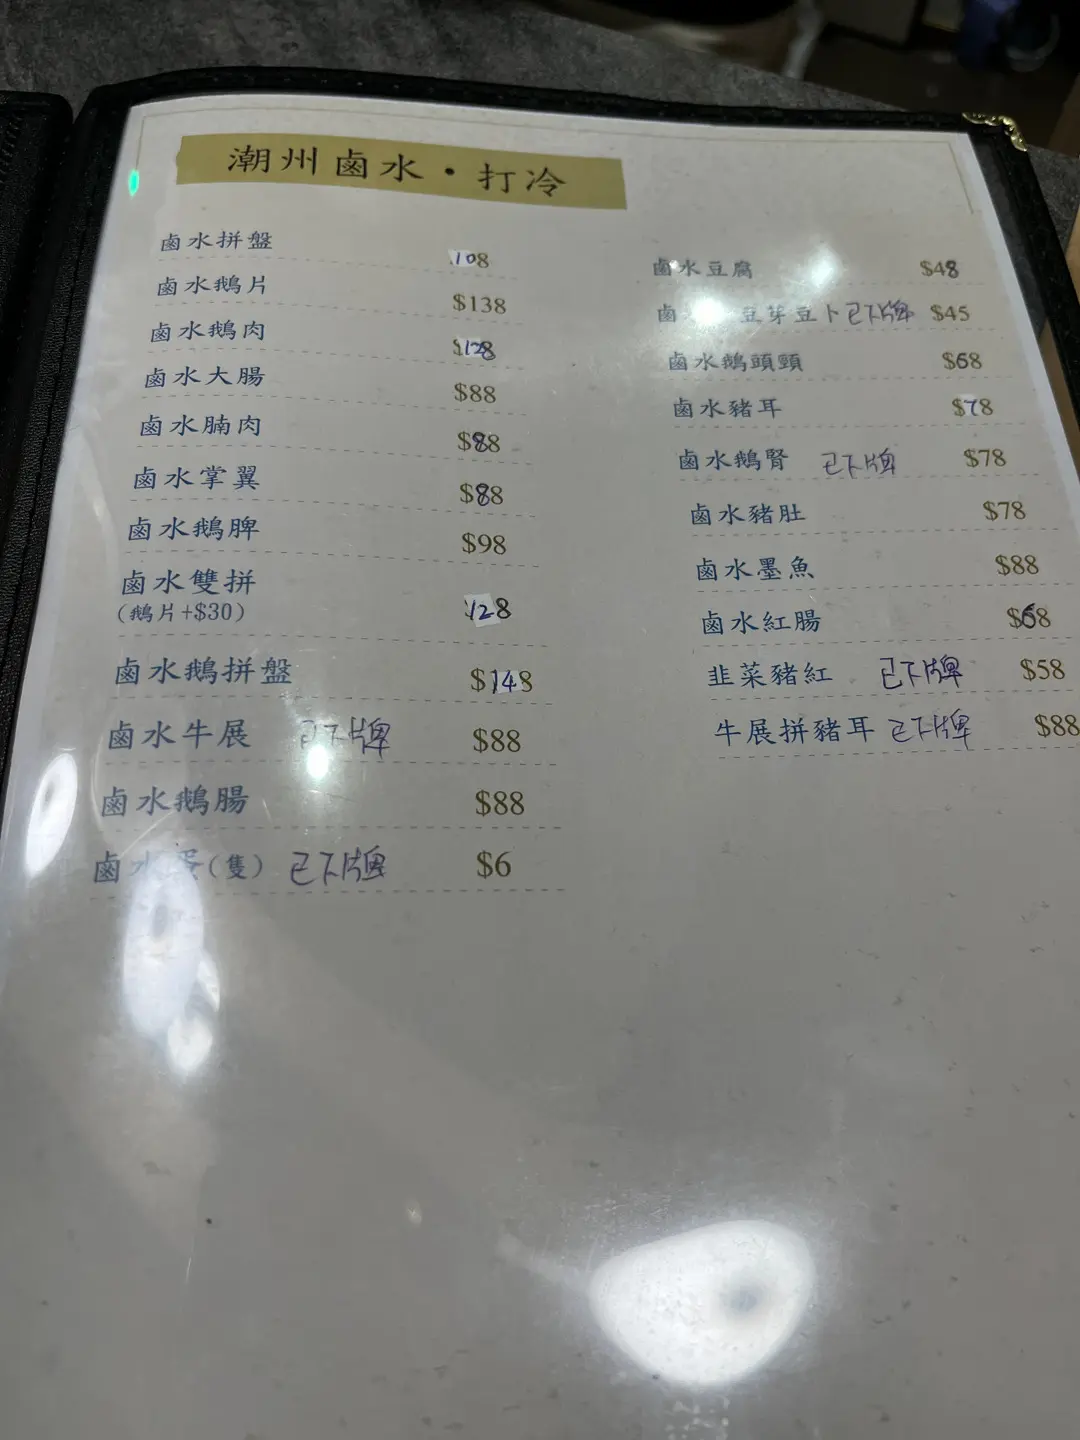 潮州鹵水·打冷
鹵水拼盤 108
鹵水鵝片 $138
鹵水鵝肉 $128
鹵水大腸 $88
鹵水腩肉 $88
鹵水掌翼 $88
鹵水鵝脾 $98
鹵水雙拼 128
(鵝片+$30)
鹵水鵝拼盤 $148
鹵水牛展 已下牌 $88
鹵水鵝腸 $88
鹵水蛋(隻) 已下牌 $6
鹵水豆腐 $48
鹵 豆芽豆卜 已下牌 $45
鹵水鵝頭頸 $68
鹵水豬耳 $78
鹵水鵝腎 已下牌 $78
鹵水豬肚 $78
鹵水墨魚 $88
鹵水紅腸 $68
韭菜豬紅 已下牌 $58
牛展拼豬耳 已下牌 $88